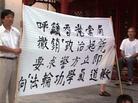 呼籲香港當局
撤銷“政治起訴”
要求警方立即
向法輪功學員道歉